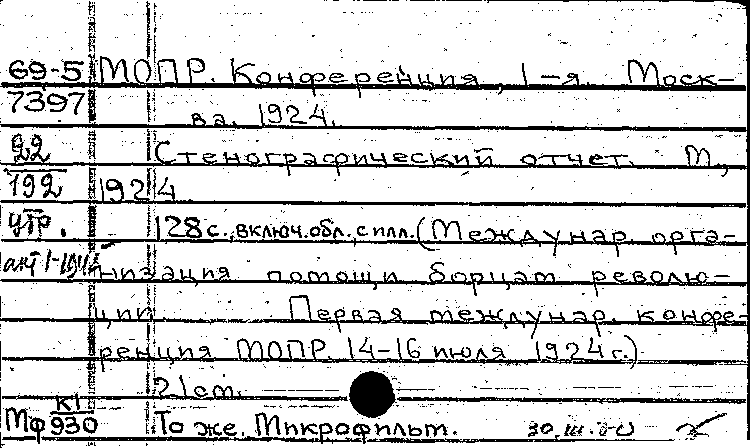 69-5 МОПР. Конференция, 1-я. Моск-
7397 ва. 1924.
22 Стенографический отчет. М.,
192 1924
утр. 128 с., включ. обл., с илл. (Междунар. орга-
акт 1-
низация помощи борцам револю-
ции Первая междунар. конфе-
ренция МОПР. 14-16 июля 1924 г.)
21 см.
Мф К1/930 То же. Микрофильм. 30.III.